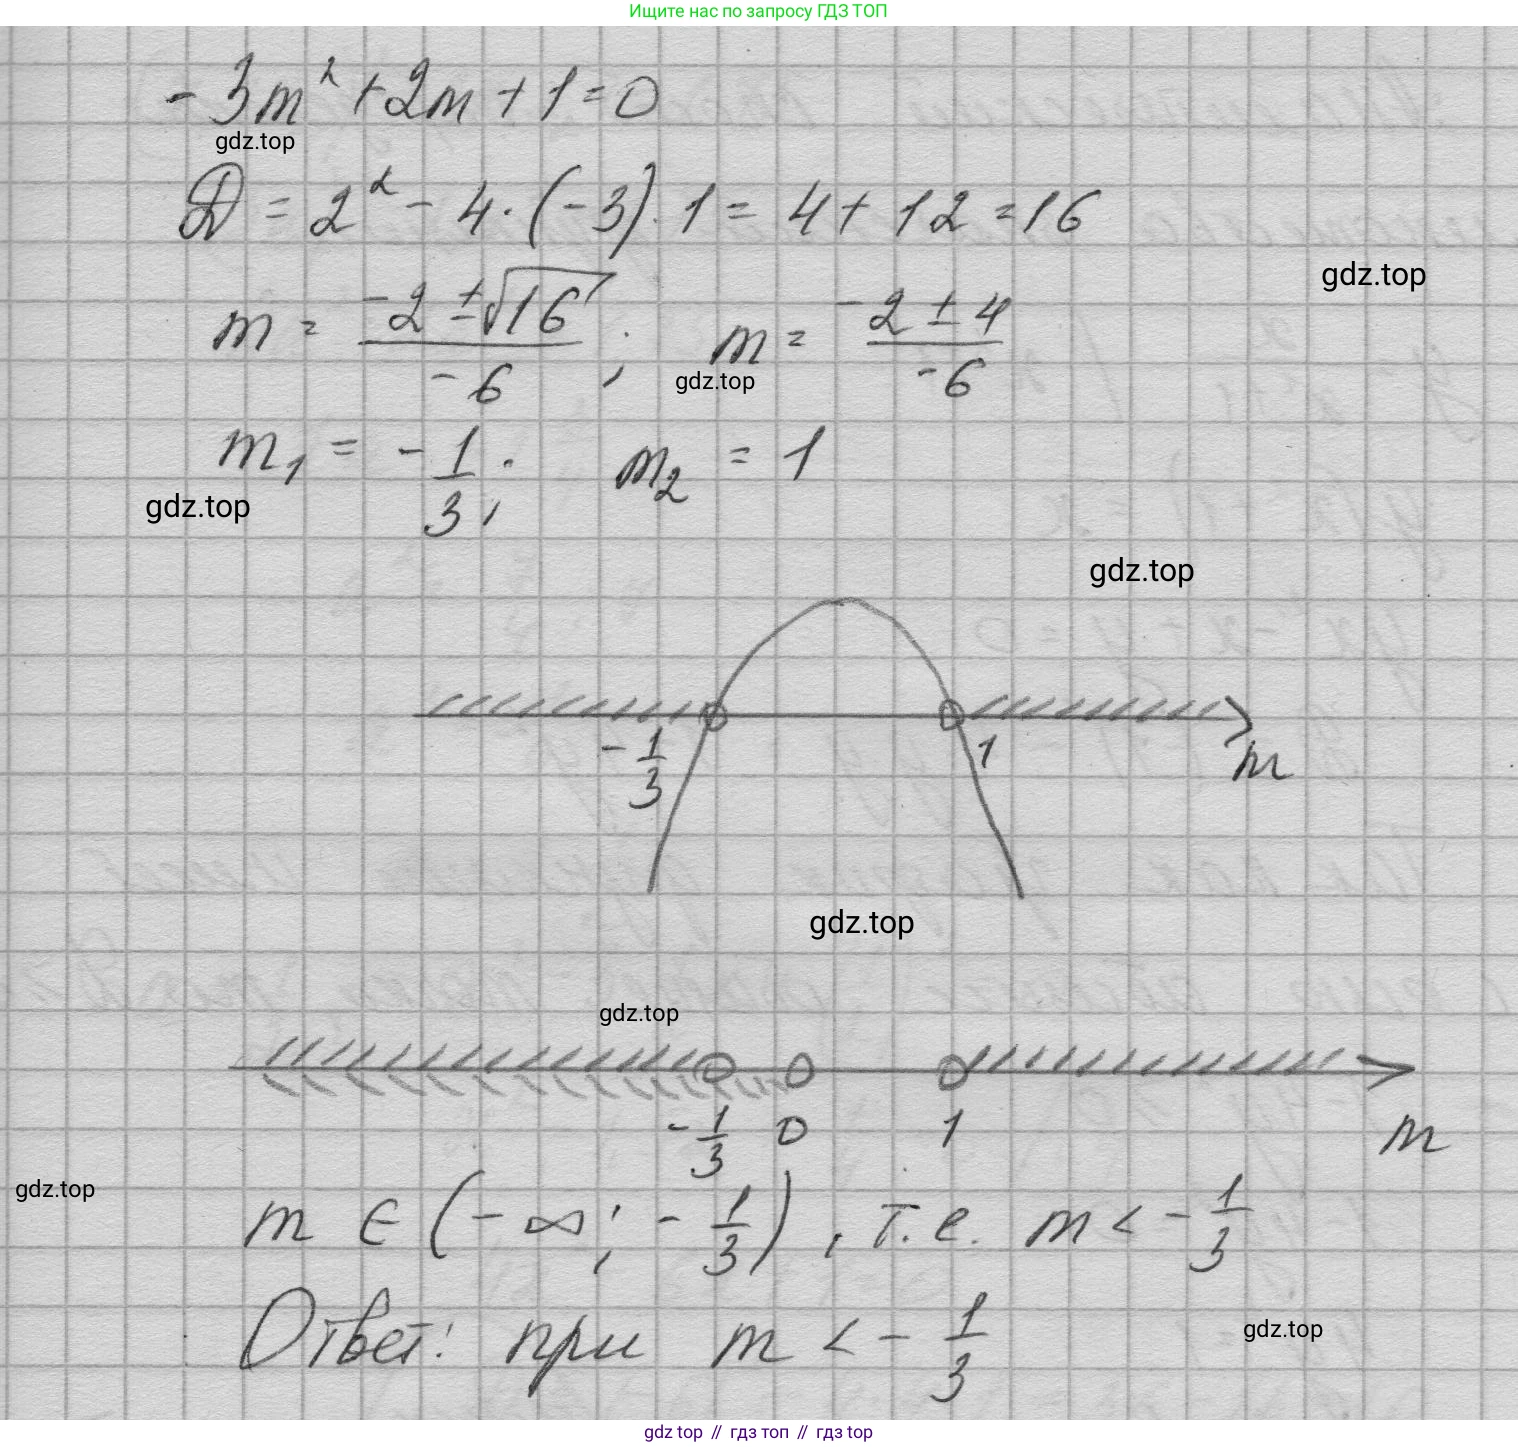 Ищите нас по запросу ГДЗ ТОП
-3m² + 2m + 1 = 0
gdz.top
D = 2² - 4 · (-3) · 1 = 4 + 12 = 16
gdz.top
m = (-2 ± √16) / -6 ; m = (-2 ± 4) / -6
gdz.top
m₁ = -1/3 ; m₂ = 1
gdz.top
gdz.top
-1/3 1 m
gdz.top
gdz.top
-1/3 0 1 m
gdz.top
m ∈ (-∞; -1/3), т.е. m < -1/3
Ответ: при m < -1/3
gdz.top
gdz top // гдз топ // гдз top